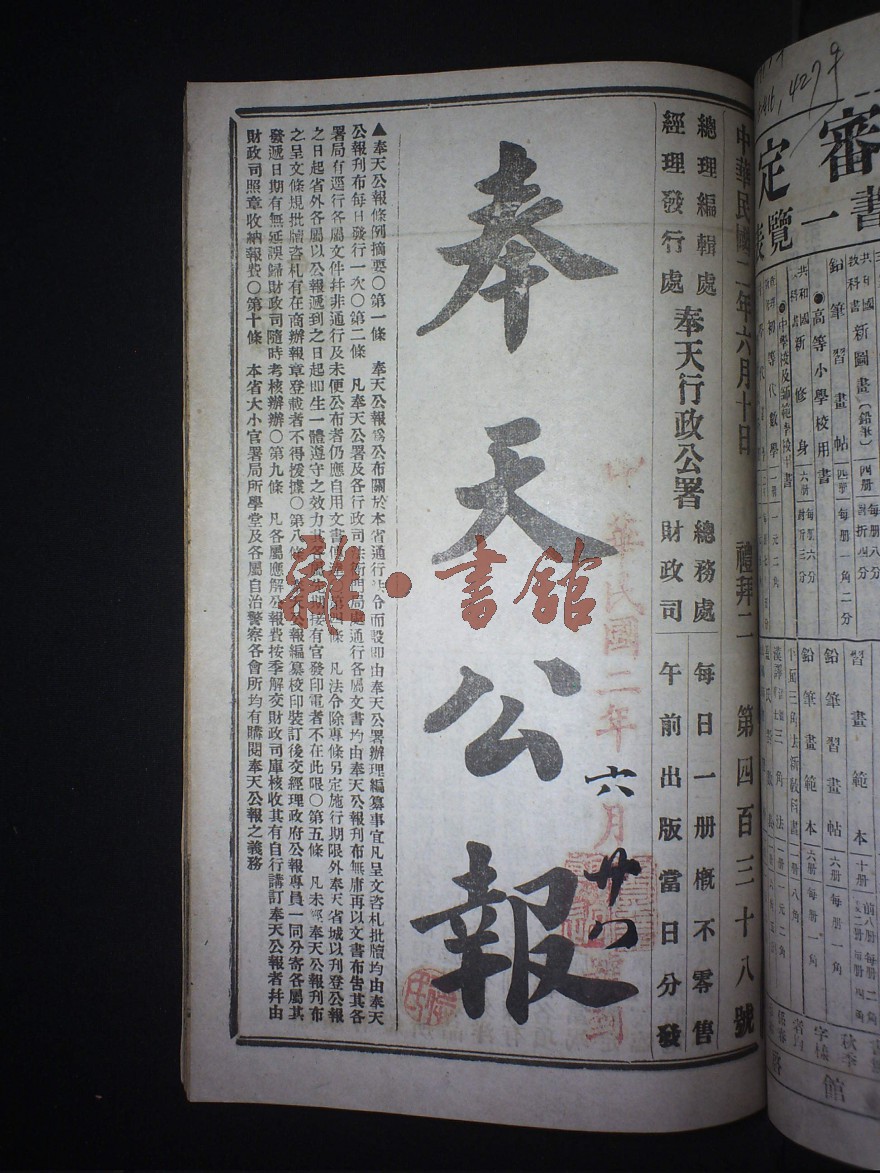 中華民國二年六月十日　禮拜二　第四百三十八號
總理編輯處
經理發行處
奉天行政公署
總務處
財政司
每日一册概不零售
午前出版當日分發
中華民國二年六月廿八
到
奉天公報
雜·書館
▲奉天公報條例摘要〇第一條　奉天公報爲公布關於本省通行法令而設即由奉天公署辦理編纂事宜凡呈文咨札批牘均由奉天
公報刊布每日發行一次〇第二條　凡奉天公署及各行政司法衙門局處通行各屬文書均由奉天公報刊布無庸再以文書布告其各
署局有逕行各屬文件幷非通行及未便公布者仍應自用文書　第四條　凡法令除專條另定施行期限外奉天省城以刊登公報
之日起省外各屬以公報遞到之日起即生一體遵守之效力其各屬　期接有官發印電者不在此限〇第五條　凡未經奉天公報刊布
之呈文條規批牘咨札有在商辦報章登載者不得援據〇第八條　天公報編纂校印裝訂後交經理政府公報專員一同分寄各屬其
發遞日期有無延誤歸財政司隨時考核辦辦〇第九條　凡各屬應解公報費按季解交財政司庫核收其有自行講訂奉天公報者幷由
財政司照章收納報費〇第十條　本省大小官署局所學堂及各屬自治警察各會所均有購閱奉天公報之義務
審
定
書
一
覽
表
鉛筆習畫帖　四册　每册一角二分
●高等小學校用書
共和國新修身　六册　每册六分
新圖畫　四册　每册八分
習畫範本　十册
鉛筆習畫帖　四册　每册一角
鉛筆畫範本　六册　每册一角
館